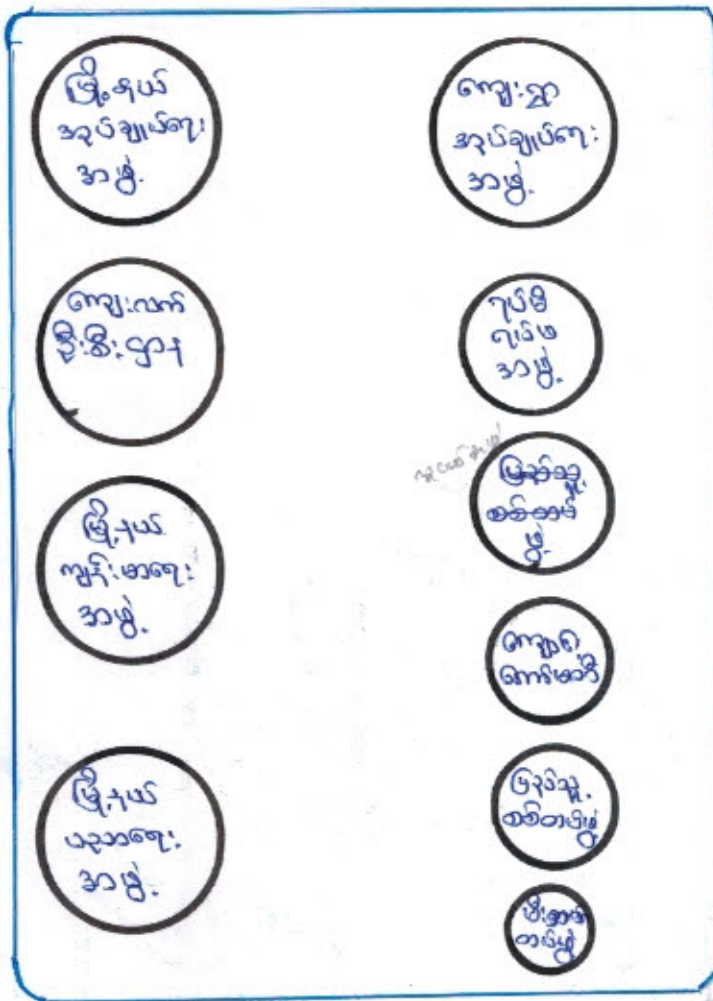 မြို့နယ်
အုပ်ချုပ်ရေး
အဖွဲ့
ကျေးလက်
ဦးစီးဌာန
မြို့နယ်
ကျန်းမာရေး
အဖွဲ့
မြို့နယ်
ပညာရေး
အဖွဲ့
ကျေးရွာ
အုပ်ချုပ်ရေး
အဖွဲ့
ရပ်မိ
ရပ်ဖ
အဖွဲ့
ပြည်သူ့
စစ်တပ်
ဖွဲ့
ကျေးရွာ
ကော်မတီ
ပြည်သူ့
စစ်တပ်ဖွဲ့
မီးသတ်
တပ်ဖွဲ့